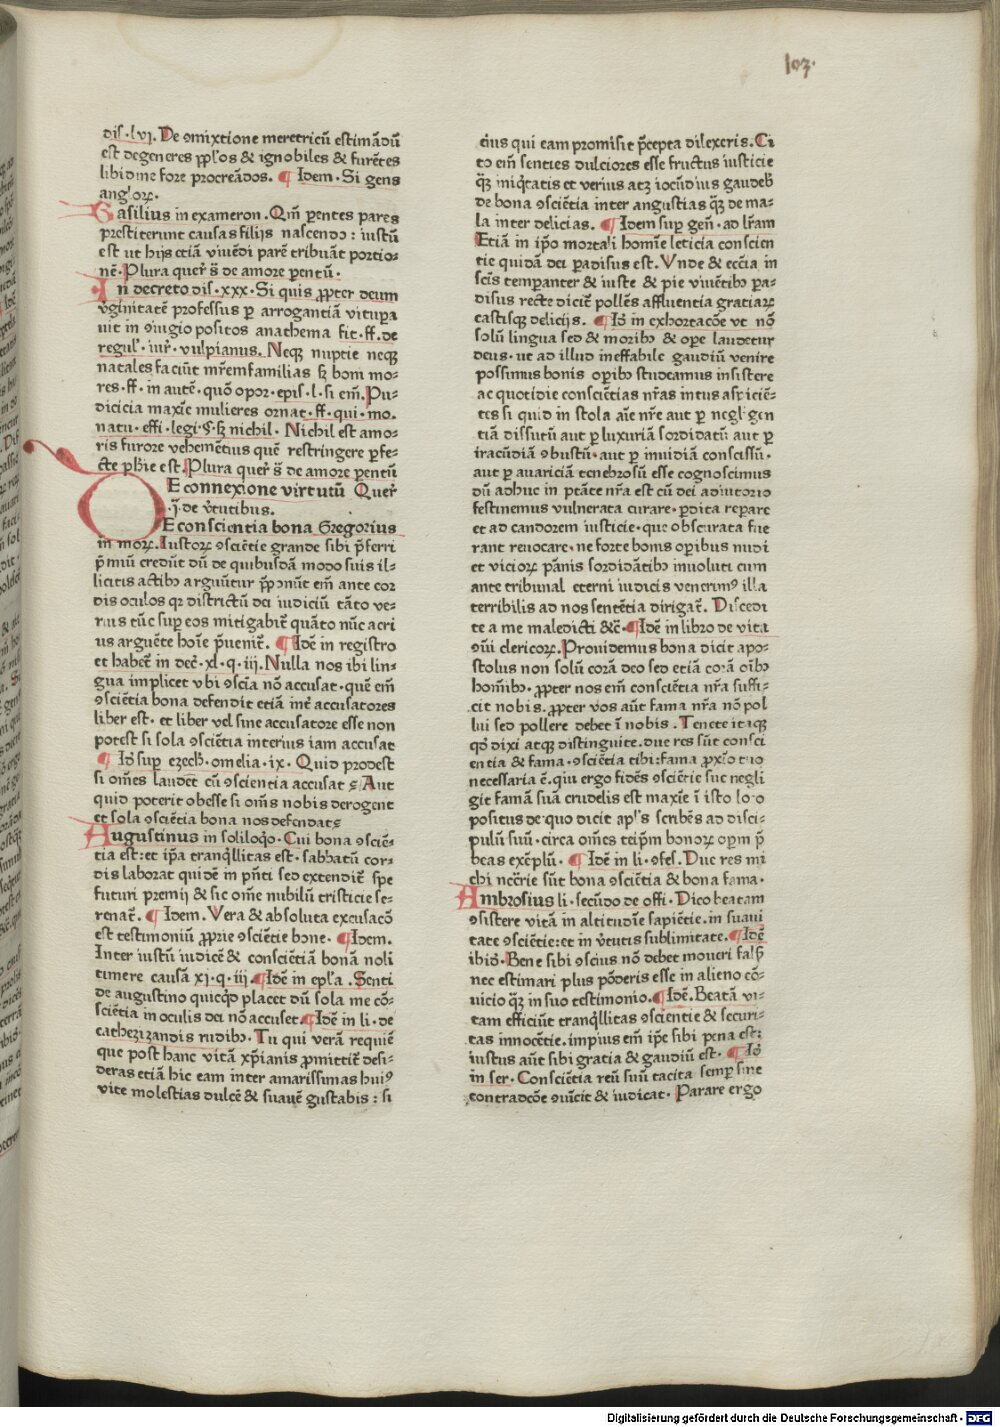 103.
dis·lvi. De ꝯmixtione meretricū estimādū
est degeneres ppl'os & ignobiles & furētes
libidine fore procreādos. ¶ Idem. Si gens
angloꝝ.
Basilius in exameron. Qm̄ parentes pares
prestiterunt causas filijs nascendo: iustū
est ut hijs etiā viuēdi parē tribuāt portio-
nē. Plura quer̄ s̄ de amore parentū.
In decreto dis·xxx. Si quis ꝓpter deum
v̄ginitatē professus ꝑ arrogantiā vitupa
uit in ꝯiugio positos anathema sit. ff. de
regul'. iur̄. vulpianus. Neqꝫ nuptie neqꝫ
natales faciūt mr̄emfamilias sꝫ boni mo-
res. ff. in autē. quō opor. epis. l. si em̄. Pu-
dicicia maxīe mulieres ornat. ff. qui. mo.
natu. effi. legi. §. sꝫ nichil. Nichil est amo-
ris furore vehemētius quē restringere ꝑfe-
cte ph̄ie est. Plura quer̄ s̄ de amore ꝑentū
DE connexione virtutū Quer̄
·j. de v̄tutibus.
DE conscientia bona Gregorius
in moꝝ. Iustoꝝ ꝯsciētie grande sibi p̄ferri
p̄miū credūt dū de quibusdā modo suis il-
licitis actibꝰ arguūtur ꝓponūt em̄ ante cor
dis oculos qr districtū dei iudiciū tāto ve-
rius tūc suꝑ eos mitigabit̄ quāto nūc acri
us arguēte hoīe p̄uenit̄. ¶ Idē in registro
et habet̄ in dec̄. xl. q. iii. Nulla nos ibi lin-
gua implicet vbi ꝯscīa nō accusat. quē em̄
ꝯsciētia bona defendit etiā inter accusatores
liber est. et liber vel sine accusatore esse non
potest si sola ꝯsciētia interius iam accusat
¶ Idꝰ suꝑ ezech'. omelia. ix. Quid prodest
si om̄es laudēt cū ꝯscientia accusat Aut
quid poterit obesse si om̄s nobis derogent
et sola ꝯsciētia bona nos defendat
Augustinus in soliloqo. Cui bona ꝯsciē-
tia est: et ip̄a tranqllitas est. sabbatū cor-
dis laborat quidē in pn̄ti sed extendit̄ spe
futuri premij & sic om̄e nubilū tristicie se-
renat̄. ¶ Idem. Vera & absoluta excusacō
est testimoniū ꝓprie ꝯsciētie bone. ¶ Idem.
Inter iustū iudicē & consciētiā bonā noli
timere causā xj. q. iii. ¶ Idē in epl'a. Senti
de augustino quicqd placet dū sola me cō-
sciētia in oculis dei nō accuset. ¶ Idē in li. de
cathezizandis rudibꝰ. Tu qui verā requiē
que post hanc vitā xp̄ianis ꝓmittit̄ desi-
deras etiā hic eam inter amarissimas huiꝰ
vite molestias dulcē & suauē gustabis: si
eius qui eam promisit p̄cepta dilexeris. Ci
to em̄ senties dulciores esse fructus iusticie
qꝫ iniqtatis et verius atqꝫ iocūdius gaudeb̄
de bona ꝯsciētia inter angustias qꝫ de ma-
la inter delicias. ¶ Idem suꝑ gen̄. ad lr̄am
Etiā in ip̄o mortali homīe leticia conscien
tie quidā dei ꝑadisus est. Vnde & eccīa in
sc̄is temꝑanter & iuste & pie viuētibꝰ ꝑa-
disus recte dicit̄ pollēs affluentia gratiaꝝ
castisqꝫ delicijs. ¶ Idꝰ in exhortacōe vt nō
solū lingua sed & moribꝰ & oꝑe laudetur
deus. ut ad illud ineffabile gaudiū venire
possimus bonis oꝑibꝰ studeamus insistere
ac quotidie consciētias nr̄as intus aspiciē-
tes si quid in stola aīe nr̄e aut ꝑ negligen
tiā dissutū aut ꝑ luxuriā sordidatū aut ꝑ
iracūdiā ꝯbustū. aut ꝑ inuidiā conscissū.
aut ꝑ auariciā tenebrosū esse cognoscimus
dū adhuc in ptāte nr̄a est cū dei adiutorio
festinemus vulnerata curare. ꝑdita reparare
et ad candorem iusticie. que obscurata fue
rant reuocare. ne forte bonis oꝑibus nudi
et vicioꝝ pānis sordidātibꝰ inuoluti cum
ante tribunal eterni iudicis venerimꝰ illa
terribilis ad nos sentētia dirigat̄. Discedi
te a me maledicti &c̄. ¶ Idē in libro de vita
ꝯūi clericoꝝ. Prouidemus bona dicit apo-
stolus non solū corā deo sed etiā corā oībꝰ
hom̄ibꝰ. ꝓpter nos em̄ consciētia nr̄a suffi-
cit nobis. ꝓpter vos aūt fama nr̄a nō pol
lui sed pollere debet ī nobis. Tenete itaqꝫ
qd' dixi atqꝫ distinguite. due res sūt consci
entia & fama. ꝯsciētia tibi: fama ꝓxīo tuo
necessaria ē. qui ergo fidēs ꝯsciētie sue negli
git famā suā crudelis est maxīe ī isto loco
positus de quo dicit apl's scribēs ad disci-
pulū suū. circa om̄es teip̄m bonoꝝ oꝑm p̄
beas exēplū. ¶ Idē in li. ꝯfes. Due res mi
chi necr̄ie sūt bona ꝯsciētia & bona fama.
Ambrosius li. secūdo de offi. Dico beatam
ꝯsistere vitā in altitudīe sapiētie. in suaui
tate ꝯsciētie: et in v̄tutis sublimitate. ¶ Idē
ibidꝰ. Bene sibi ꝯscius nō debet moueri fals̄
nec estimari plus pōderis esse in alieno cō-
uicio qꝫ in suo testimonio. ¶ Idē. Beatā vi-
tam efficiūt tranqllitas ꝯscientie & securi-
tas innocētie. impius em̄ ip̄e sibi pena est:
iustus aūt sibi gratia & gaudiū est. ¶ Idꝰ
in ser. Consciētia reū suū tacita semꝑ sine
contradcōe ꝯuīcit & iudicat. Parare ergo
Digitalisierung gefördert durch die Deutsche Forschungsgemeinschaft - DFG